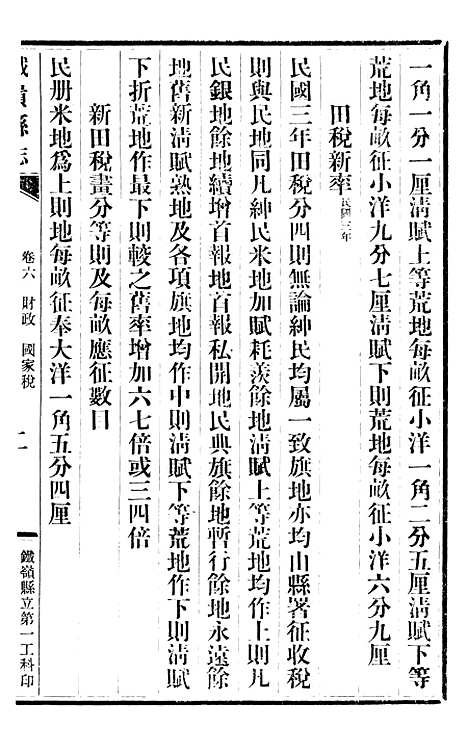 一角一分一厘淸賦上等荒地每畝征小洋一角二分五厘淸賦下等
荒地每畝征小洋九分七厘淸賦下則荒地每畝征小洋六分九厘
田稅新率民國三年
民國三年田稅分四則無論紳民均屬一致旗地亦均由縣署征收稅
則與民地同凡紳民米地加賦耗羨餘地淸賦上等荒地均作上則凡
民銀地餘地續增首報地首報私開地民典旗餘地暫行餘地永遠餘
地舊新淸賦熟地及各項旗地均作中則淸賦下等荒地作下則淸賦
下折荒地作最下則較之舊率增加六七倍或三四倍
新田稅畫分等則及每畝應征數目
民册米地爲上則地每畝征奉大洋一角五分四厘
鐵嶺縣志
卷六 財政 國家稅
二
鐵嶺縣立第一工科印